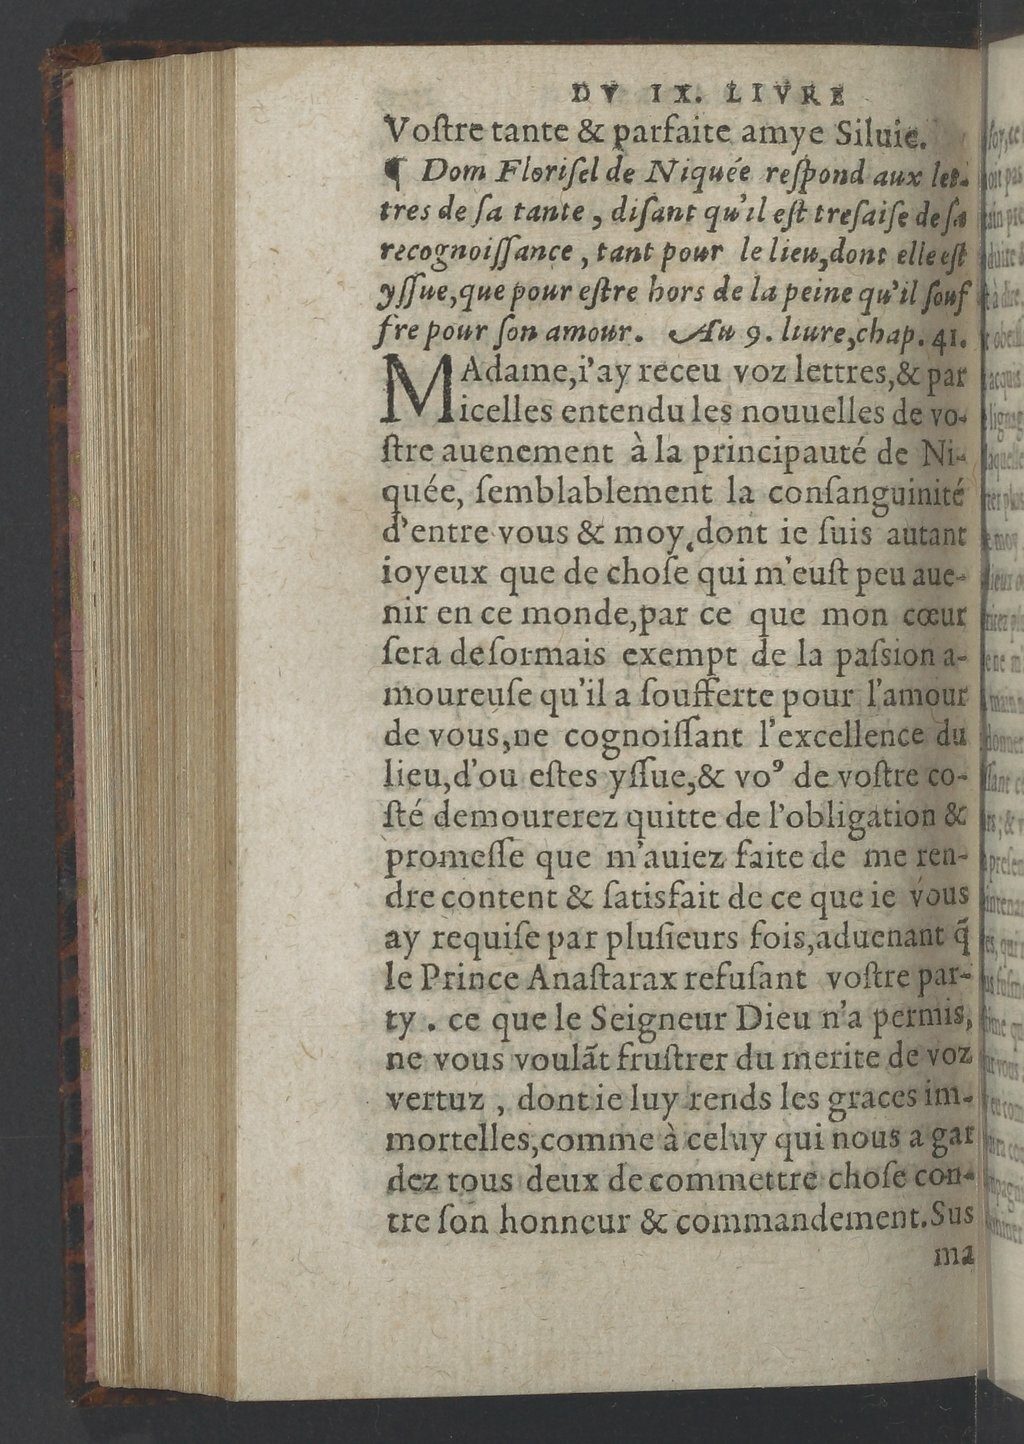 DV IX. LIVRE
Voſtre tante & parfaite amye Siluie.
¶ Dom Floriſel de Niquée reſpond aux let-
tres de ſa tante, diſant qu'il eſt treſaiſe de ſa
recognoiſſance, tant pour le lieu, dont elle eſt
yſſue, que pour eſtre hors de la peine qu'il ſouf
fre pour ſon amour. Au 9. liure, chap. 41.
MAdame, i'ay receu voz lettres, & par
icelles entendu les nouuelles de vo-
ſtre auenement à la principauté de Ni-
quée, ſemblablement la conſanguinité
d'entre vous & moy, dont ie ſuis autant
ioyeux que de choſe qui m'euſt peu aue-
nir en ce monde, par ce que mon cœur
ſera deſormais exempt de la paſsion a-
moureuſe qu'il a ſoufferte pour l'amour
de vous, ne cognoiſſant l'excellence du
lieu, d'ou eſtes yſſue, & voꝰ de voſtre co-
ſté demourerez quitte de l'obligation &
promeſſe que m'auiez faite de me ren-
dre content & ſatisfait de ce que ie vous
ay requiſe par pluſieurs fois, aduenant q̃
le Prince Anaſtarax refuſant voſtre par-
ty . ce que le Seigneur Dieu n'a permis,
ne vous voulãt fruſtrer du merite de voz
vertuz , dont ie luy rends les graces im-
mortelles, comme à celuy qui nous a gar
dez tous deux de commettre choſe con-
tre ſon honneur & commandement. Sus
ma